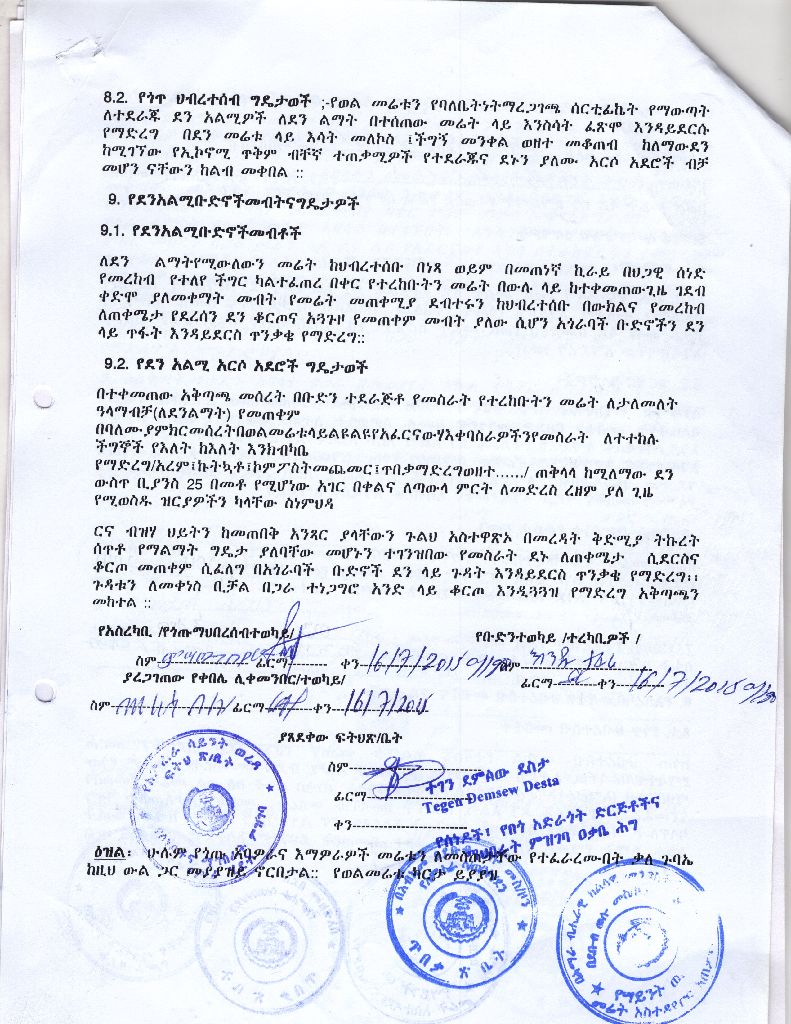 8.2. የጎጥ ህብረተሰብ ግዴታወች ;-የወል መሬቱን የባለቤትነትማረጋገጫ ሰርቲፊኬት የማውጣት
ለተደራጁ ደን አልሚዎች ለደን ልማት በተሰጠው መሬት ላይ እንስሳት ፈጽሞ እንዳይደርሱ
የማድረግ በደን መሬቱ ላይ እሳት መለኮስ ፤ችግኝ መንቀል ወዘተ መቆጠብ ከለማውደን
ከሚገኘው የኢኮኖሚ ጥቅም ብቸኛ ተጠቃሚዎች የተደራጁና ደኑን ያለሙ አርሶ አደሮች ብቻ
መሆን ናቸውን ከልብ መቀበል ::
9. የደንአልሚቡድኖችመብትናግዴታዎች
9.1. የደንአልሚቡድኖችመብቶች
ለደን ልማትየሚውለውን መሬት ከህብረተሰቡ በነጻ ወይም በመጠነኛ ኪራይ በህጋዊ ሰነድ
የመረከብ የተለየ ችግር ካልተፈጠረ በቀር የተረከቡትን መሬት በውሉ ላይ ከተቀመጠውጊዜ ገደብ
ቀድሞ ያለመቀማት መብት የመሬት መጠቀሚያ ደብተሩን ከህብረተሰቡ በውክልና የመረከብ
ለጠቀሜታ የደረሰን ደን ቆርጦና አጓጉዞ የመጠቀም መብት ያለው ሲሆን አጎራባች ቡድኖችን ደን
ላይ ጥፋት እንዳይደርስ ጥንቃቄ የማድረግ::
9.2. የደን አልሚ አርሶ አደሮች ግዴታወች
በተቀመጠው አቅጣጫ መሰረት በቡድን ተደራጅቶ የመስራት የተረከቡትን መሬት ለታለመለት
ዓላማብቻ(ለደንልማት) የመጠቀም
በባለሙያምክርመሰረትበወልመሬቱላይልዩልዩየአፈርናውሃእቀባስራዎችንየመስራት ለተተከሉ
ችግኞች የእለት ከእለት እንክብካቤ
የማድረግ/አረም፤ኩትኳቶ፤ኮምፖስትመጨመር፤ጥበቃማድረግወዘተ....../ ጠቅላላ ከሚለማው ደን
ውስጥ ቢያንስ 25 በመቶ የሚሆነው አገር በቀልና ለጣውላ ምርት ለመድረስ ረዘም ያለ ጊዜ
የሚወስዱ ዝርያዎችን ካላቸው ስነምህዳ
ርና ብዝሃ ህይትን ከመጠበቅ አንጻር ያላቸውን ጉልህ አስተዋጽኦ በመረዳት ቅድሚያ ትኩረት
ሰጥቶ የማልማት ግዴታ ያለባቸው መሆኑን ተገንዝበው የመስራት ደኑ ለጠቀሜታ ሲደርስና
ቆርጦ መጠቀም ሲፈለግ በአጎራባች ቡድኖች ደን ላይ ጉዳት እንዳይደርስ ጥንቃቄ የማድረግ፡፡
ጉዳቱን ለመቀነስ ቢቻል በጋራ ተነጋግሮ አንድ ላይ ቆርጦ እንዲጓጓዝ የማድረግ አቅጣጫን
መከተል ::
የአስረካቢ /የጎጡማህበረሰብተወካይ/ የቡድንተወካይ /ተረካቢዎች /
ስም ፊርማ ቀን 16/7/2015 ስም
ያረጋገጠው የቀበሌ ሊቀመንበር/ተወካይ/ ፊርማ ቀን 16/7/2015
ስም ፊርማ ቀን 16/7/2015
ያጸደቀው ፍትህጽ/ቤት
ስም
ፊርማ
ተገን ደምልው ደስታ
Tegen Demsew Desta
ቀን
የሰነዶች፣ የበጎ አድራጎት ድርጅቶችና
ምዝገባ ዐቃቤ ሕግ
ዕዝል፡ ሁሉም የጎጡ አባዎራና እማዎራዎች መሬቱን ለመስጠታቸው የተፈራረሙበት ቃለ ጉባኤ
ከዚህ ውል ጋር መያያዝይ ኖርበታል:: የወልመሬቱ ካርታ ይያያዝ
ሳይንት ወረዳ
ፍትህ ጽ/ቤት
ጥበቃ ጽ ቤት